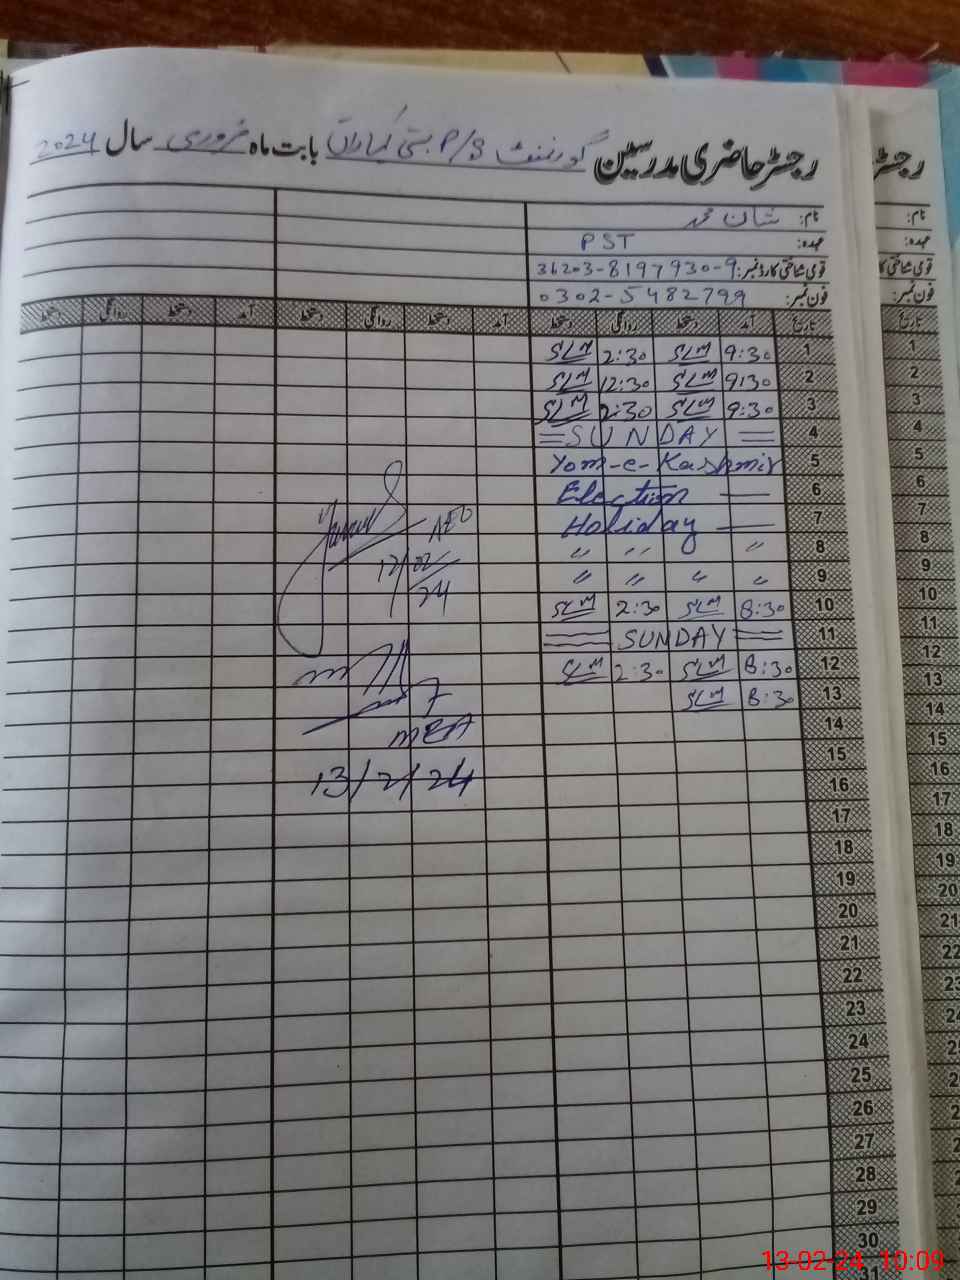 رجسٹر حاضری مدرسین گورنمنٹ P/S بستی بابت ماہ فروری سال 2024
نام: شان محمد
عہدہ: PST
قومی شناختی کارڈ نمبر: 36203-8197930-9
فون نمبر: 0302-5482799
تاریخ آمد دستخط روانگی دستخط آمد دستخط روانگی دستخط آمد دستخط روانگی دستخط
1 9:30 SLM 2:30 SLM
2 9:30 SLM 12:30 SLM
3 9:30 SLM 2:30 SLM
4 SUNDAY
5 Yom-e-Kashmir
6 Election —
7 Holiday —
8 〃 〃 〃 〃
9 〃 〃 〃 〃
10 8:30 SLM 2:30 SLM
11 SUNDAY
12 8:30 SLM 2:30 SLM
13 8:30 SLM
14
15
16
17
18
19
20
21
22
23
24
25
26
27
28
29
30
31
AEO
12/02/24
MEA
13/2/24
رجسٹر
نام:
عہدہ:
قومی شناختی
فون نمبر:
تاریخ
1
2
3
4
5
6
7
8
9
10
11
12
13
14
15
16
17
18
19
20
21
22
23
13-02-24 10:09